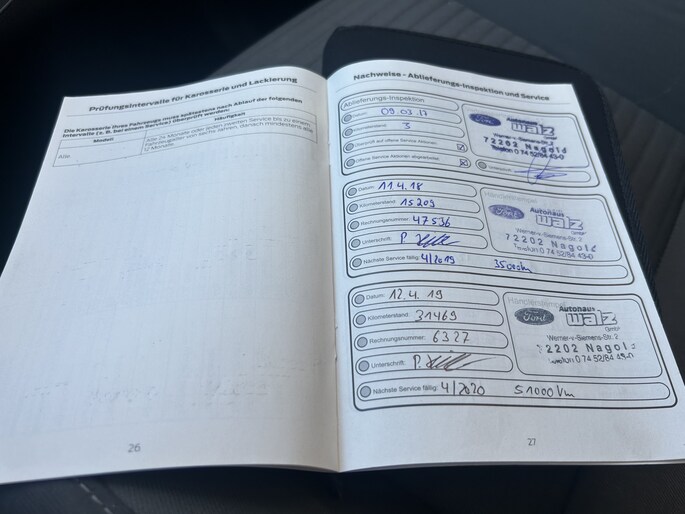 Prüfungsintervalle für Karosserie und Lackierung
Die Karosserie Ihres Fahrzeugs muss spätestens nach Ablauf der folgenden
Intervalle (z. B. bei einem Service) überprüft werden:
Modell
Häufigkeit
Alle
Alle 24 Monate oder jeden zweiten Service bis zu einem
Fahrzeugalter von sechs Jahren, danach mindestens alle
12 Monate.
26
Nachweise - Ablieferungs-Inspektion und Service
Ablieferungs-Inspektion
Datum: 09.03.17
Kilometerstand: 3
Überprüft auf offene Service-Aktionen
Offene Service-Aktionen abgearbeitet
Unterschrift:
Ford
Autohaus
walz
GmbH
Werner-v.-Siemens-Str. 2
72202 Nagold
Telefon 0 74 52/84 43-0
Datum: 11.4.18
Kilometerstand: 15209
Rechnungsnummer: 47536
Unterschrift: P.
Nächste Service fällig: 4/2019
Händlerstempel
Ford
Autohaus
walz
GmbH
Werner-v.-Siemens-Str. 2
72202 Nagold
Telefon 0 74 52/84 43-0
Datum: 12.4.19
Kilometerstand: 31469
Rechnungsnummer: 6327
Unterschrift: P.
Nächste Service fällig: 4/2020 51000 km
Händlerstempel
Ford
Autohaus
walz
GmbH
Werner-v.-Siemens-Str. 2
72202 Nagold
Telefon 0 74 52/84 43-0
27